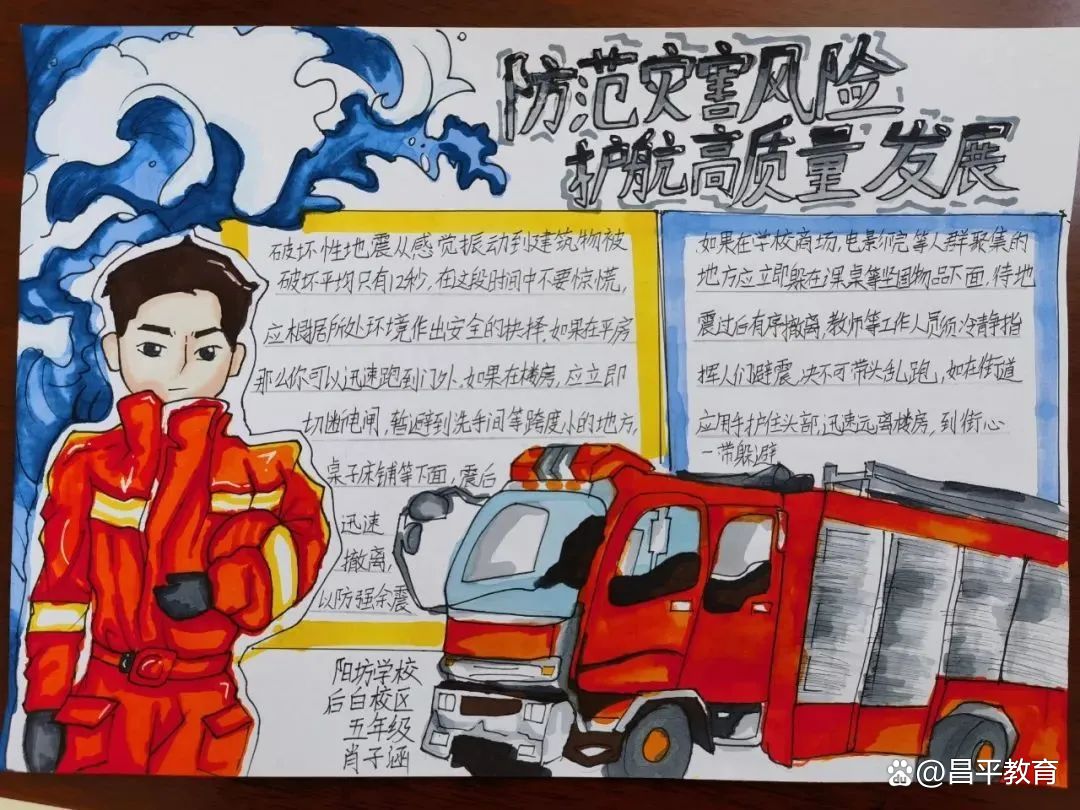 防范灾害风险
护航高质量发展
破坏性地震从感觉振动到建筑物被
破坏平均只有12秒，在这段时间中不要惊慌，
应根据所处环境作出安全的抉择.如果在平房
那么你可以迅速跑到门外，如果在楼房，应立即
切断电闸，暂避到洗手间等跨度小的地方，
桌子床铺等下面，震后
迅速
撤离，
以防强余震
如果在学校商场，电影院等人群聚集的
地方应立即躲在课桌等坚固物品下面，待地
震过后有序撤离，教师等工作人员须冷静指
挥人们避震，决不可带头乱跑，如在街道
应用手护住头部，迅速远离楼房，到街心
一带躲避
阳坊学校
后白校区
五年级
肖子涵
@昌平教育